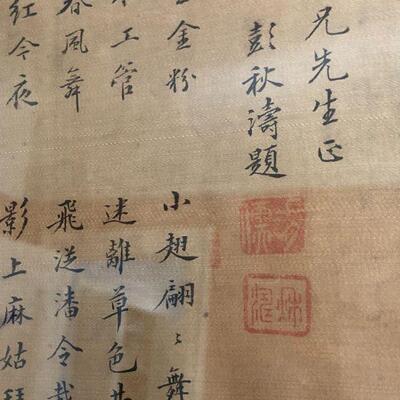 兄先生正
彭秋濤題
金粉
工管
春風舞
紅今夜
小翅翩〻舞
迷離草色
飛從潘令栽
影上麻姑